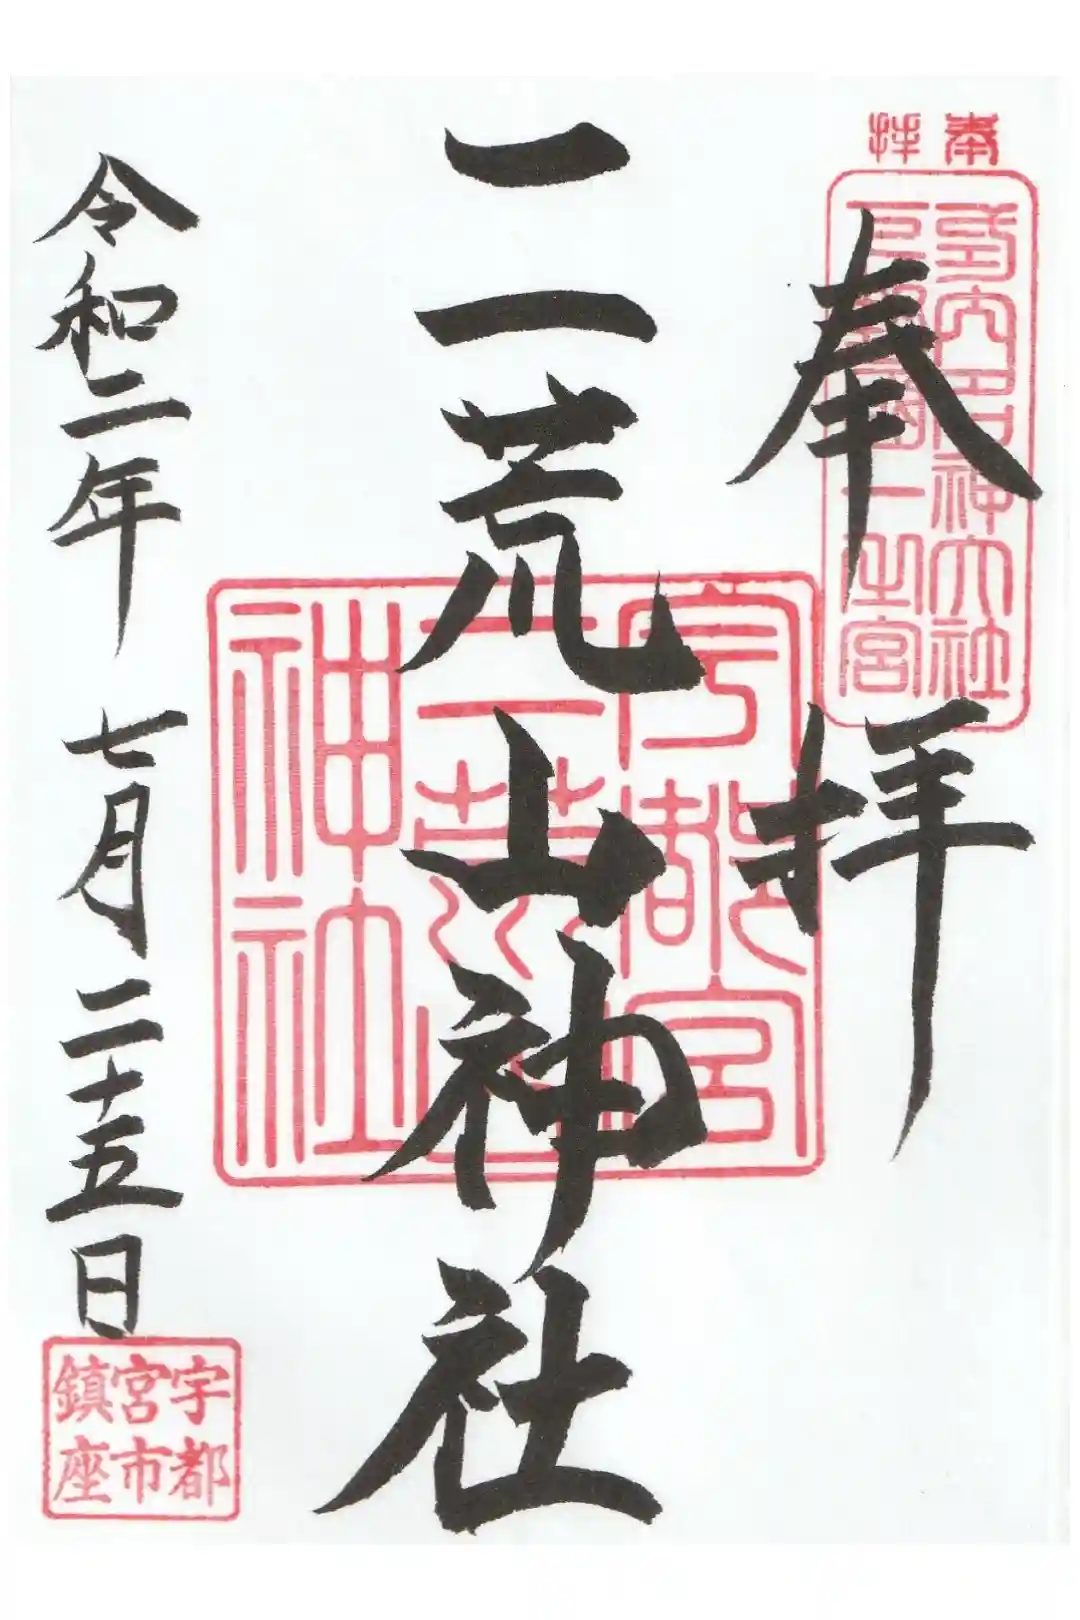 奉拝
奉拝
式内名神大社
下野國一之宮
二荒山神社
宇都宮
二荒山
神社
令和二年 七月二十五日
宇都
宮市
鎮座